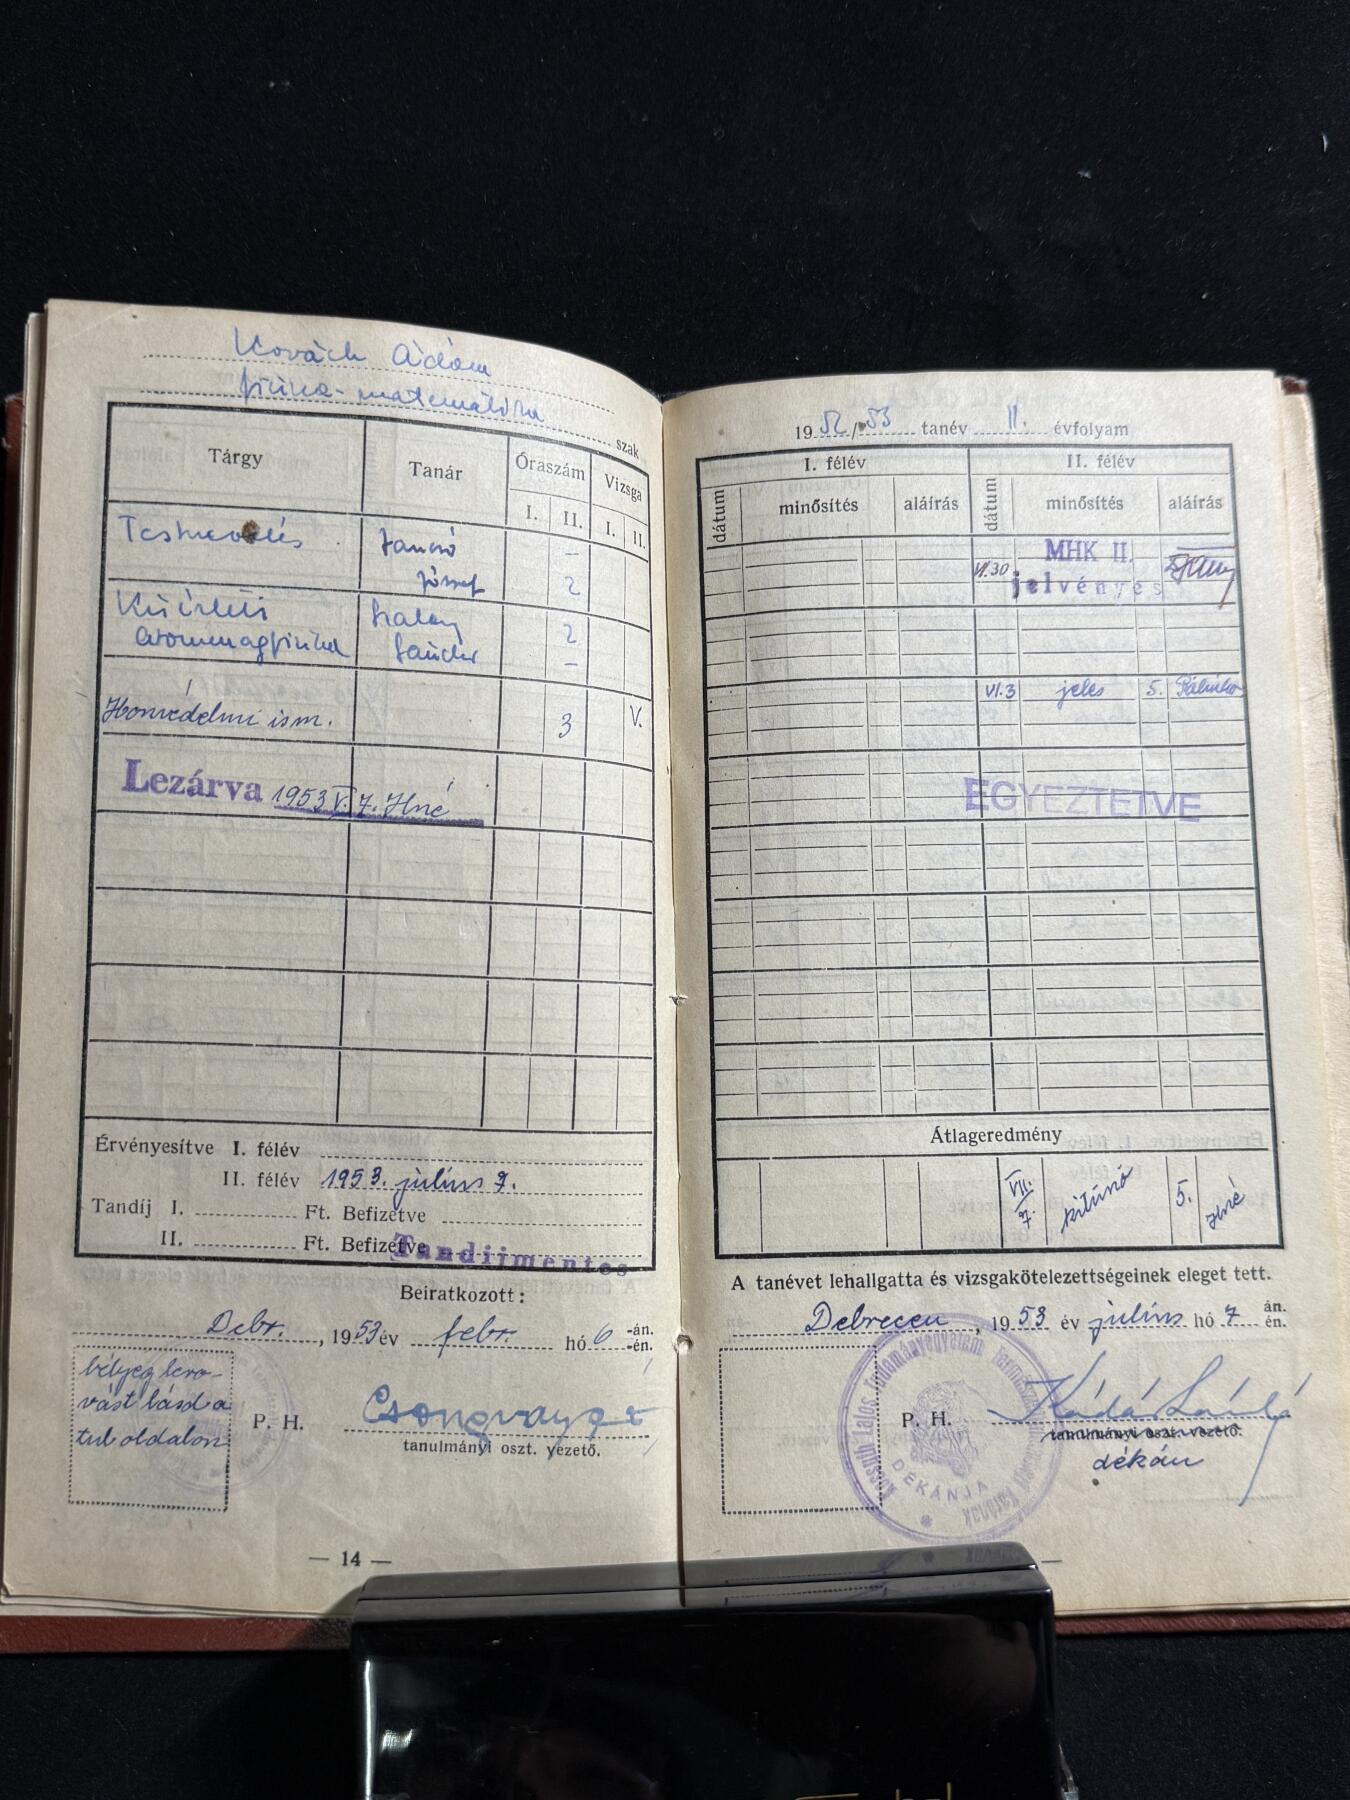 Kovách Ádám
fizika-matematika
szak
Tárgy
Tanár
Óraszám
Vizsga
I. II. I. II.
Testnevelés
Jancsó
József
-
2
Kisérleti
atommagfizika
Szalay
Sándor
2
-
Honvédelmi ism.
3
V.
Lezárva 1953 V. 7. Hné
Érvényesítve I. félév
II. félév 1953. július 7.
Tandíj I. Ft. Befizetve
II. Ft. Befizetve
Tandíjmentes
Beiratkozott:
Debr. , 1953 év febr. hó 6 -án. -én.
bélyeg lero-
vást lásd a
tul oldalon
P. H.
tanulmányi oszt. vezető.
— 14 —
1952/53 tanév II. évfolyam
I. félév
II. félév
dátum
minősítés
aláírás
dátum
minősítés
aláírás
VI.30
MHK II.
jelvényes
VI.3 jeles 5.
EGYEZTETVE
Átlageredmény
VII. 7. kitünő 5. Hné
A tanévet lehallgatta és vizsgakötelezettségeinek eleget tett.
Debrecen , 1953 év július hó 7 án. én.
P. H.
Kádár László
tanulmányi oszt. vezető.
dékán
Kossuth Lajos Tudományegyetem Természettudományi Karának
DÉKÁNJA